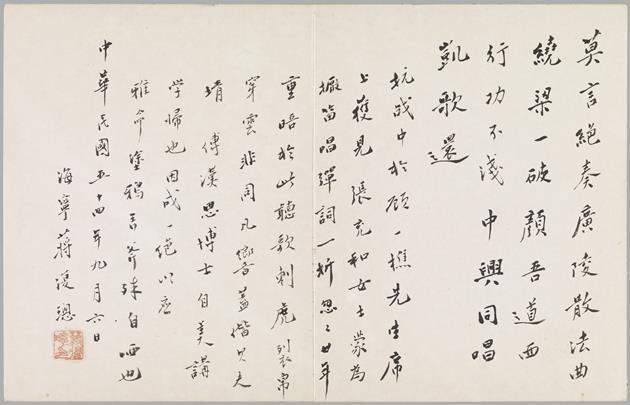 莫言絕奏廣陵散法曲
繞梁一破顏吾道西
行功不淺中興同唱
凱歌還
抗战中於顧一樵先生席
上獲見張充和女士蒙為
擫笛唱彈詞一折忽〻廿年
重晤於此聽歌刺虎裂帛
穿雲非同凡響蓋偕其夫
壻傅漢思博士自美講
學歸也因成一絕以应
雅命塗鴉弄斧殊自哂也
中華民國五十四年九月六日
海寧蔣復璁